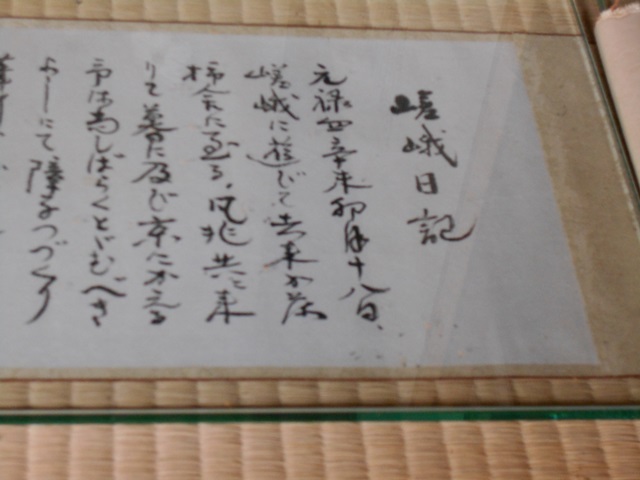 嵯峨日記
元禄四辛未卯月十八日、
嵯峨に遊びて去来が落
柿舎に至る。凡兆共ニ来
りて暮に及び京にかえる
予は尚しばらくとゞむべき
よしにて障子つづくり